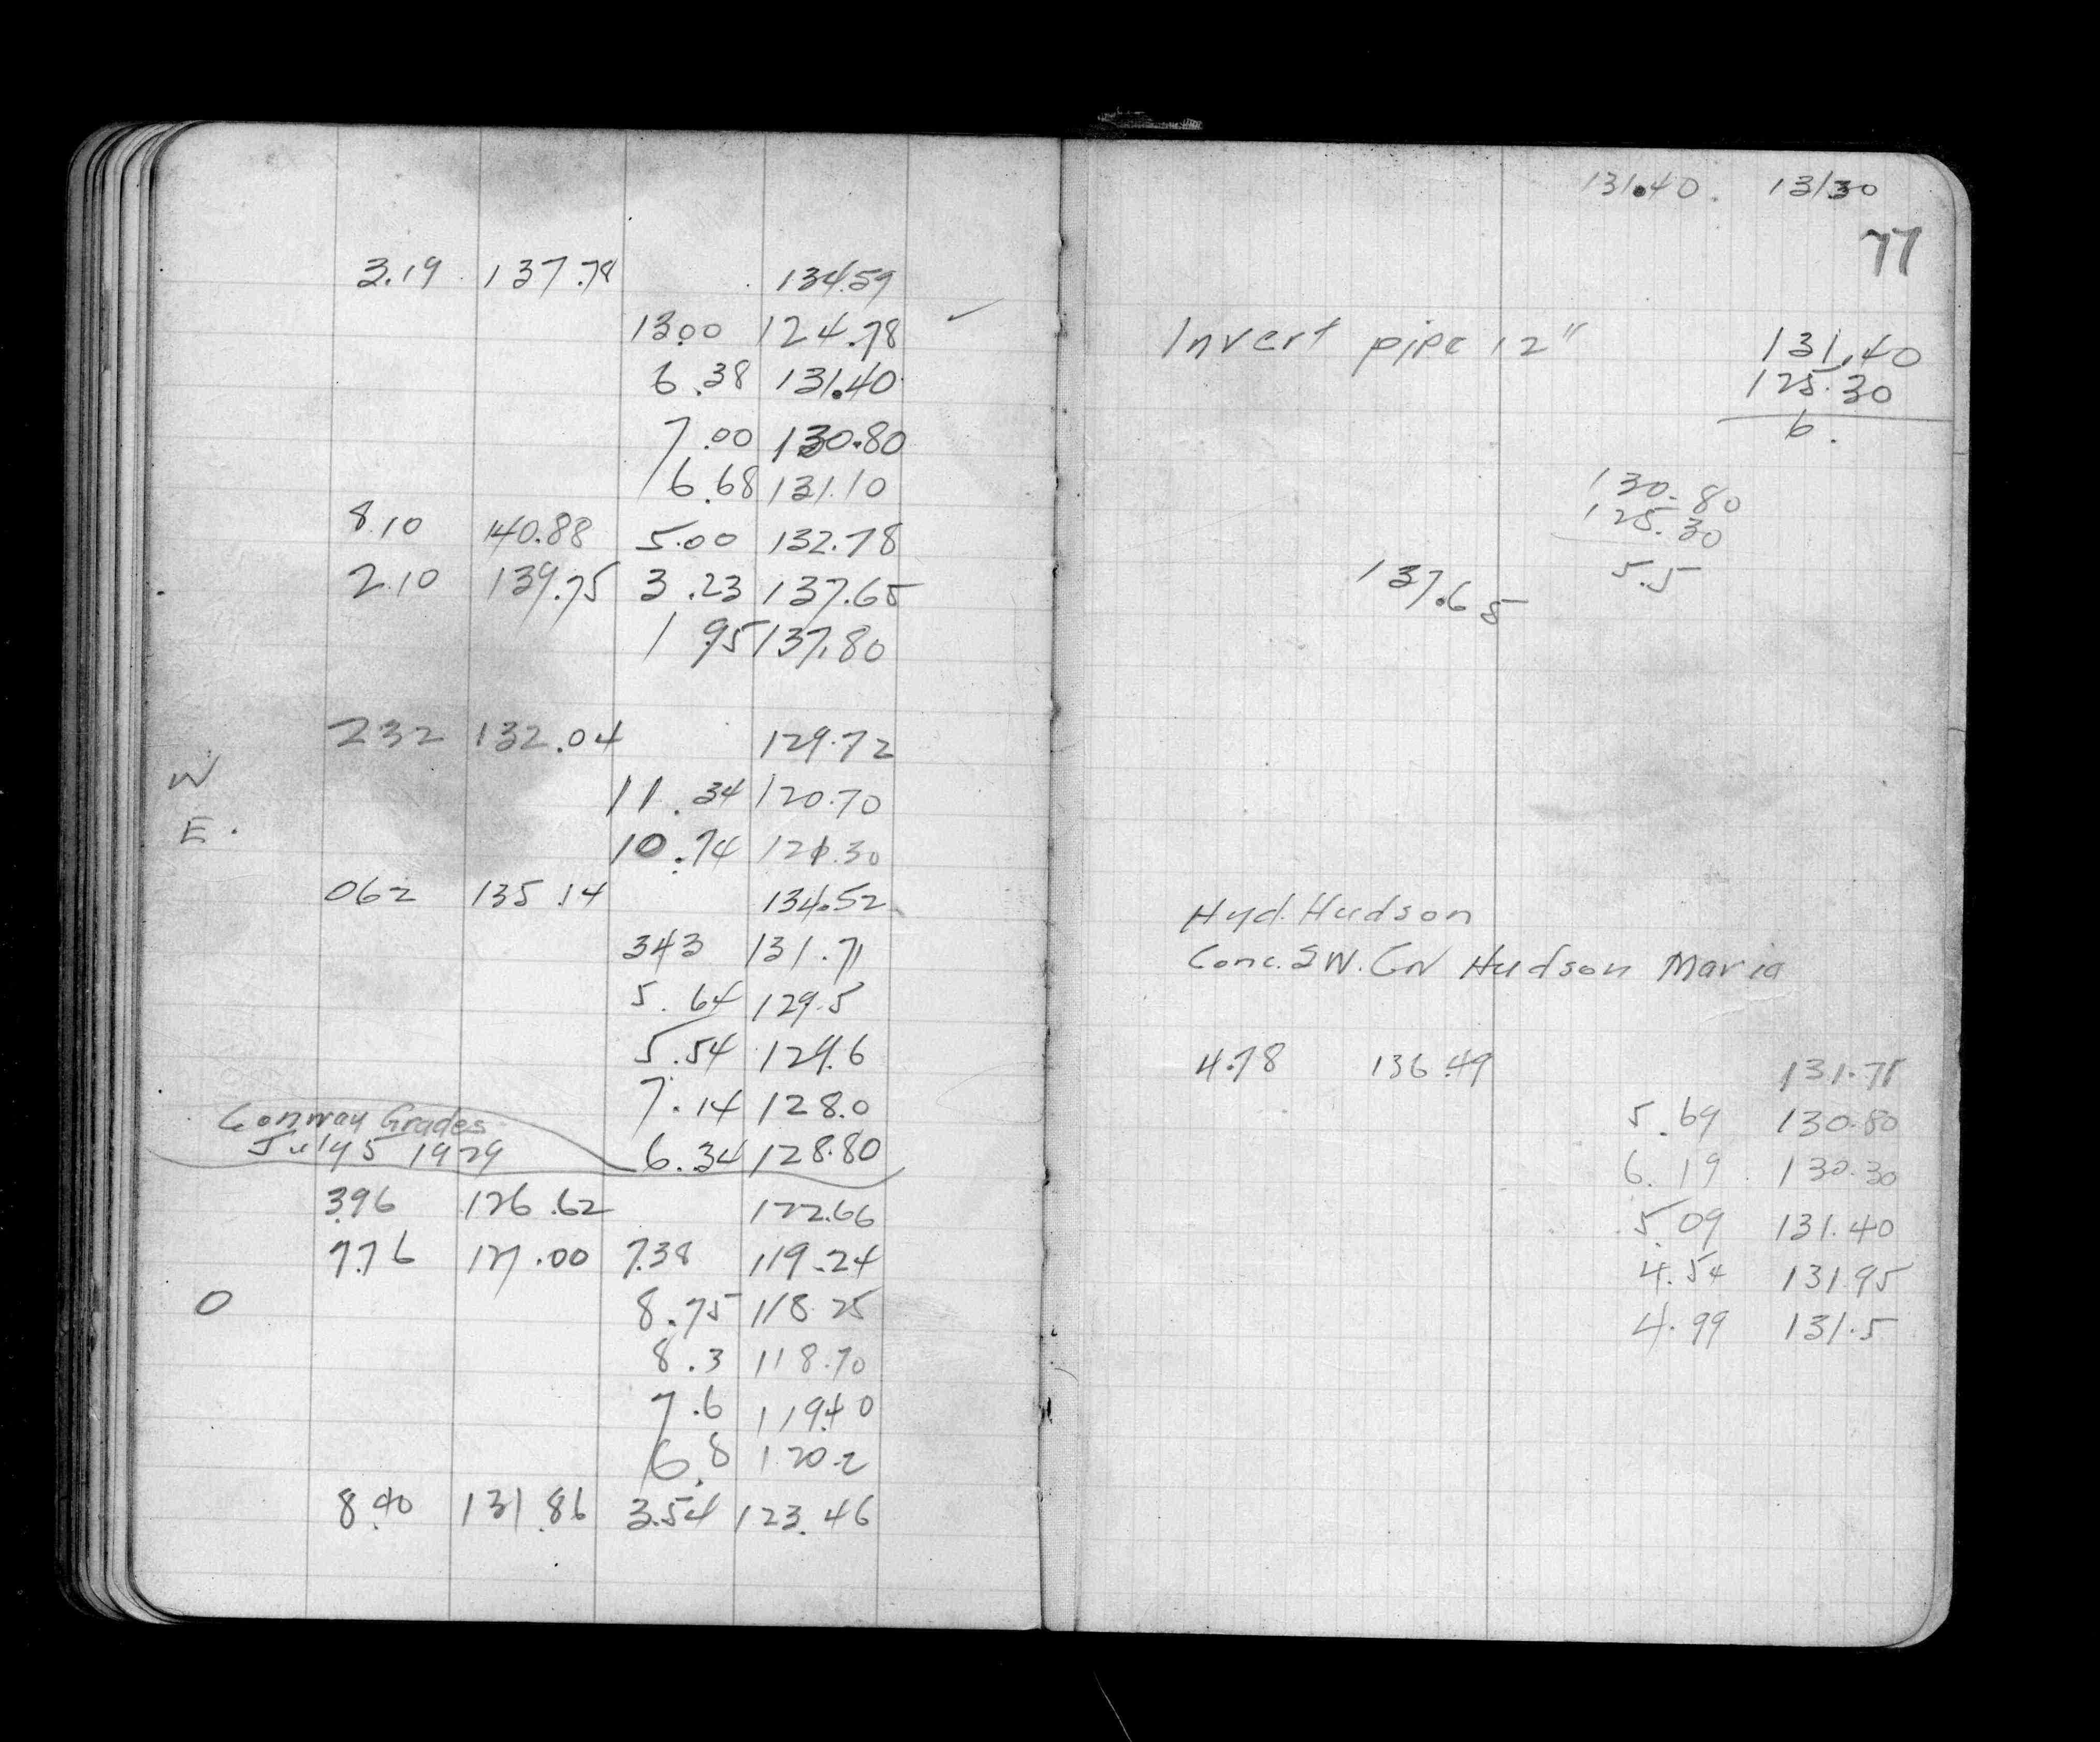 3.19 137.78 134.59
13.00 124.78
6.38 131.40
7.00 130.80
6.68 131.10
8.10 140.88 5.00 132.78
2.10 139.75 3.23 137.65
1.95 137.80
232 132.04 129.72
W 11.34 120.70
E. 10.74 121.30
062 135.14 134.52
343 131.71
5.64 129.5
5.54 129.6
7.14 128.0
Conway Grades
July 5 1929 6.34 128.80
3.96 126.62 122.66
7.76 127.00 7.38 119.24
0 8.75 118.25
8.3 118.70
7.6 119.40
6.8 120.2
8.40 131.86 3.54 123.46
131.40. 13130
77
Invert pipe 12" 131.40
125.30
6.
130.80
125.30
5.5
137.65
Hyd. Hudson
Conc. SW. Cn Hudson Maria
4.78 136.49 131.71
5.69 130.80
6.19 130.30
5.09 131.40
4.54 131.95
4.99 131.5